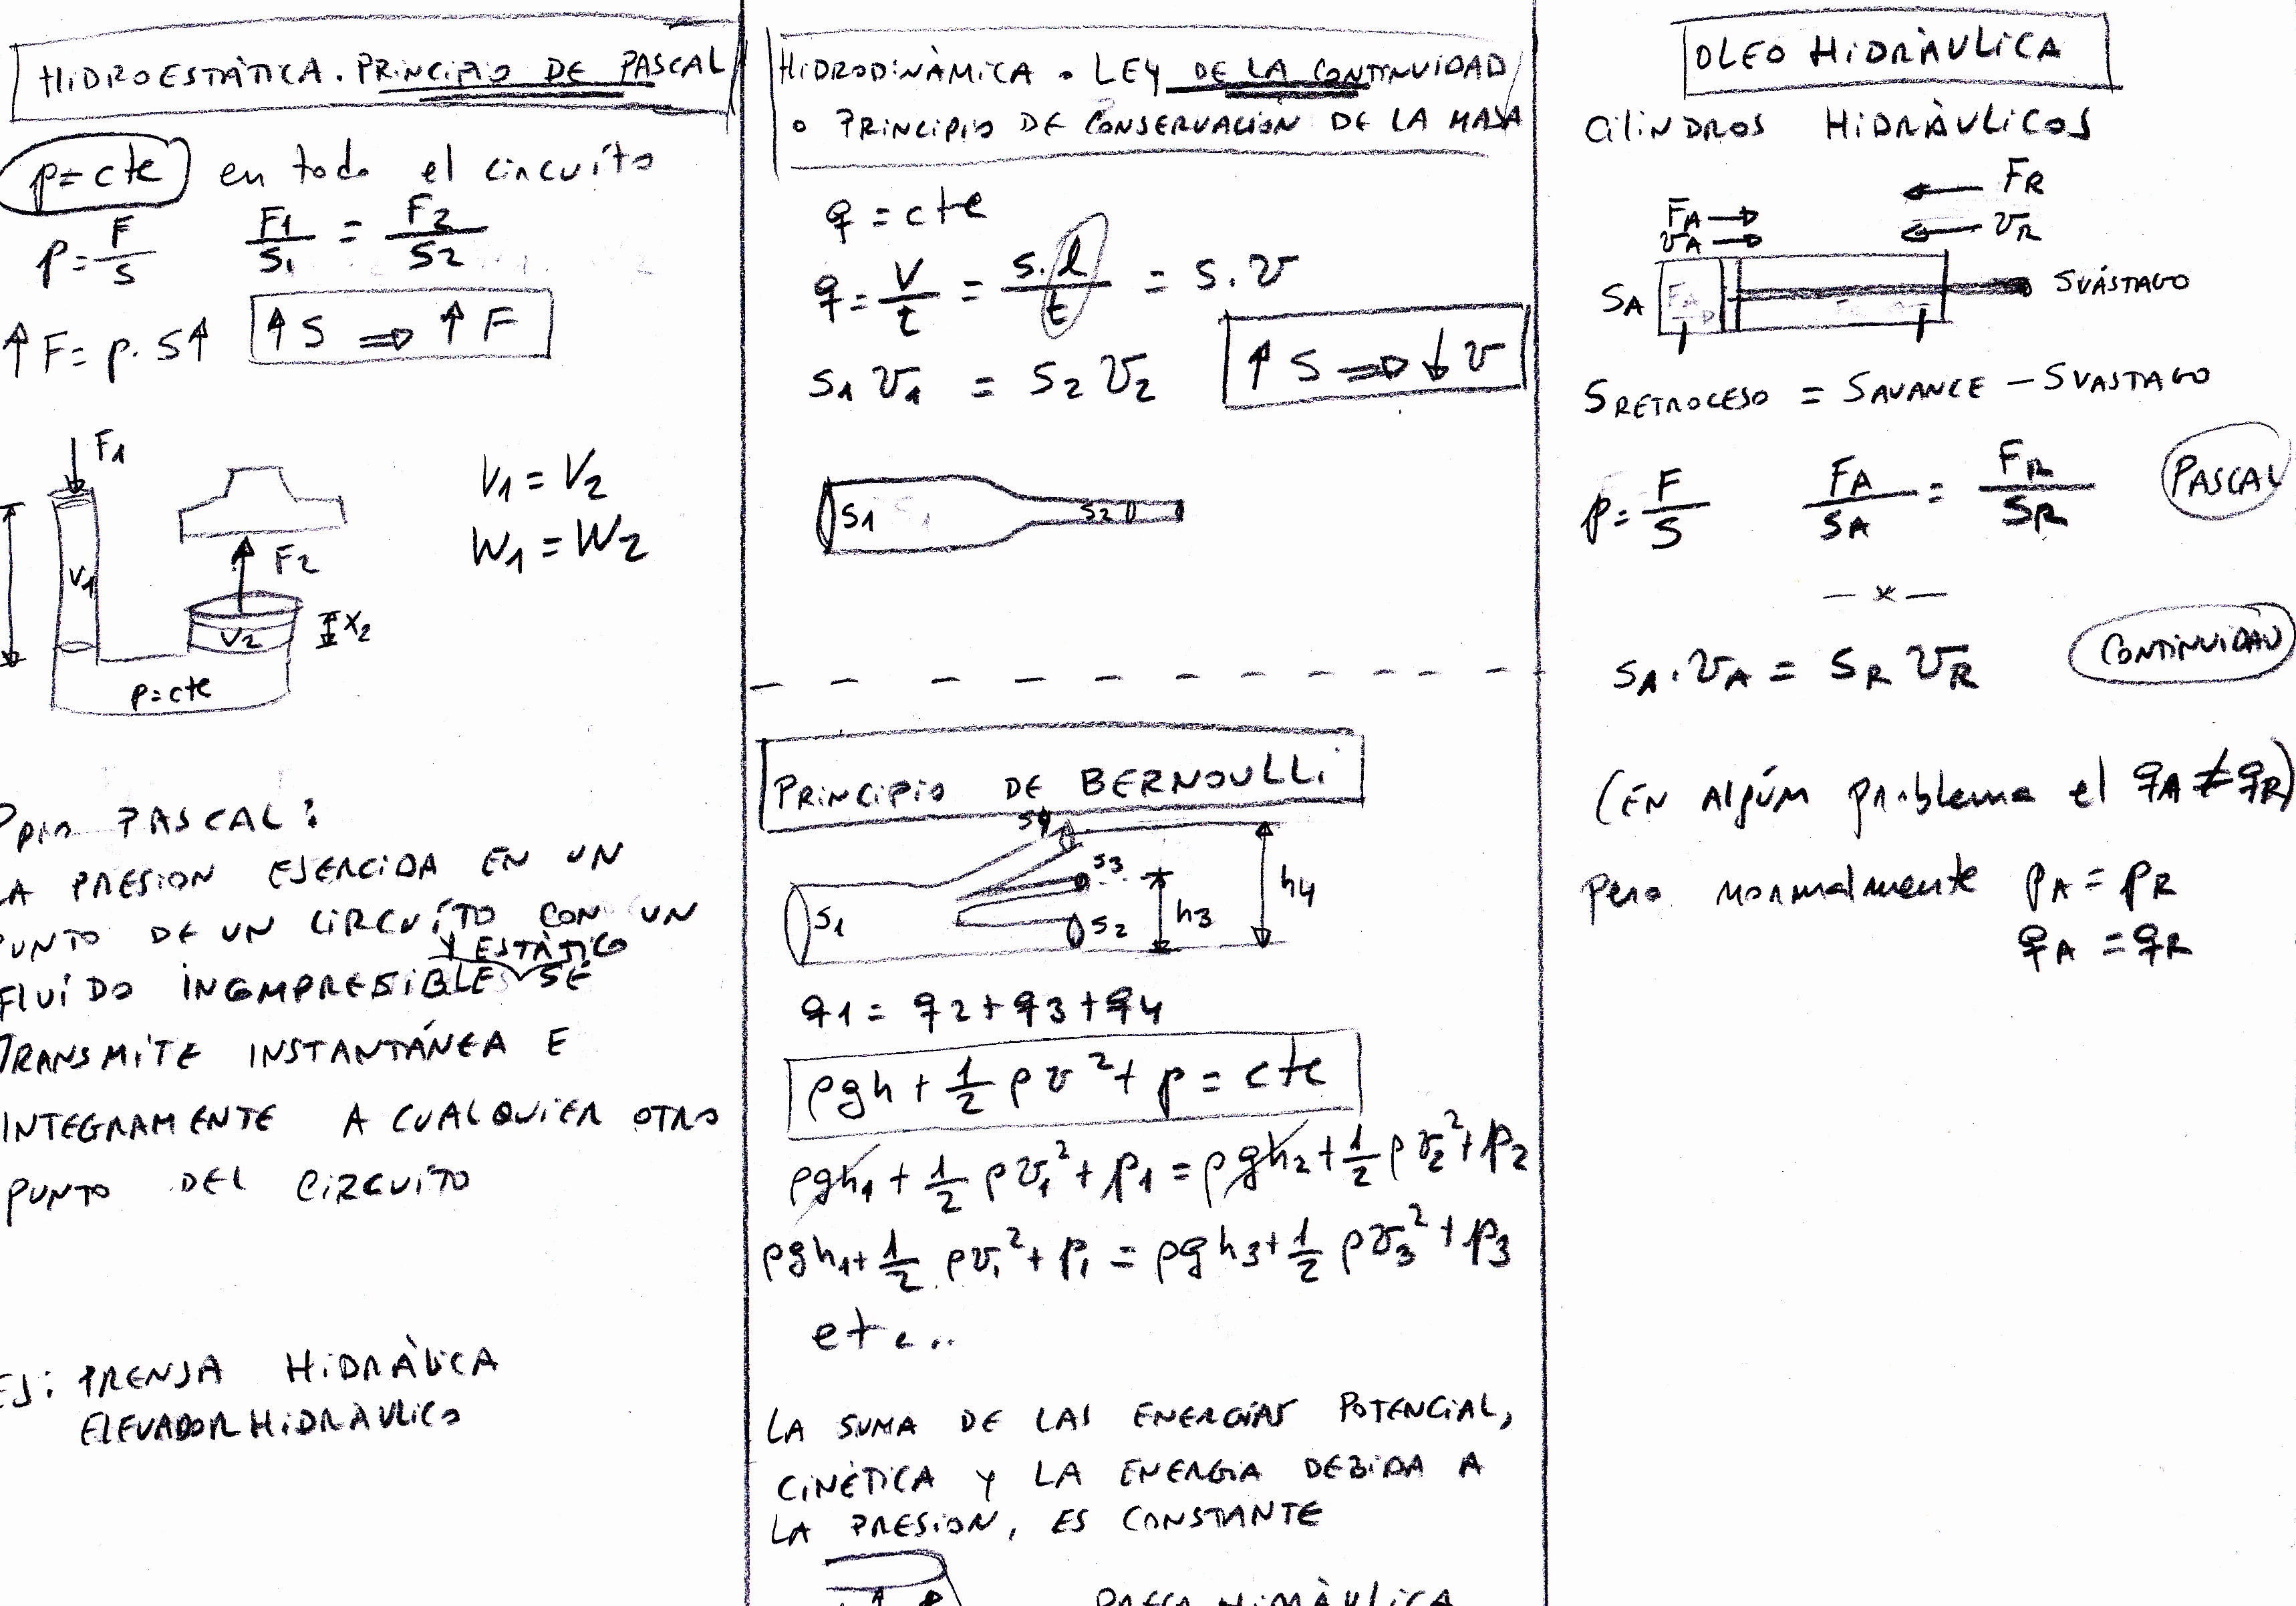 HIDROESTÁTICA. PRINCIPIO DE PASCAL
p=cte en todo el circuíto
p=F/S F1/S1 = F2/S2
↑F=p.S↑ ↑S ⇒ ↑F
F1
V1=V2
W1=W2
F2
V1
V2 X2
p=cte
Ppio PASCAL:
LA PRESION EJERCIDA EN UN
PUNTO DE UN CIRCUÍTO CON UN
Y ESTÀTICO
FLUÍDO INCOMPRESIBLE SE
TRANSMITE INSTANTÁNEA E
INTEGRAMENTE A CUALQUIER OTRO
PUNTO DEL CIRCUÍTO
EJ: PRENSA HIDRÀULICA
ELEVADOR HIDRÀULICO
HIDRODINÀMICA. LEY DE LA CONTINUIDAD
O PRINCIPIO DE CONSERVACIÓN DE LA MASA
q=cte
q=V/t = s.l/t = s.v
S1 v1 = S2 v2 ↑S ⇒ ↓v
S1 S2
PRINCIPIO DE BERNOULLI
S4
S3
S1 S2 h3 h4
q1=q2+q3+q4
ρgh+1/2 ρv²+p=cte
ρgh1+1/2 ρv1²+p1=ρgh2+1/2 ρv2²+p2
ρgh1+1/2 ρv1²+p1=ρgh3+1/2 ρv3²+p3
etc..
LA SUMA DE LAS ENERGÍAS POTENCIAL,
CINÉTICA Y LA ENERGIA DEBIDA A
LA PRESION, ES CONSTANTE
OLEO HIDRÀULICA
CILINDROS HIDRÀULICOS
FR
FA
vA vR
SA SVÁSTAGO
SRETROCESO = SAVANCE - SVASTAGO
p=F/S FA/SA = FR/SR PASCAL
- x -
SA.vA = SR vR CONTINUIDAD
(EN Algúm problema el qA≠qR)
Pero normalmente pA=pR
qA=qR